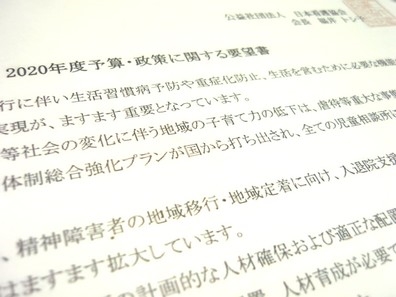 公益社団法人　日本看護協会
会長　福井 トシ子
2020年度予算・政策に関する要望書
行に伴い生活習慣病予防や重症化防止、生活を営むために必要な機能
実現が、ますます重要となっています。
等社会の変化に伴う地域の子育て力の低下は、虐待等重大な事
体制総合強化プランが国から打ち出され、全ての児童相談所に
、精神障害者の地域移行・地域定着に向け、入退院支援
はますます拡大しています。
の計画的な人材確保および適正な配
人材育成が必要で